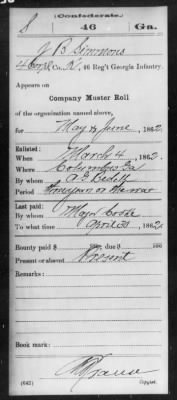 (Confederate.)
S 46 Ga.
J B Simmons
4 Corpl, Co. K, 46 Reg't Georgia Infantry.
Appears on
Company Muster Roll
of the organization named above,
for May & June, 1862.
Enlisted:
When March 4, 1862.
Where Columbus Ga
By whom A. C. Bedell
Period Three years or the war
Last paid:
By whom Maj
To what time April 30, 1862.
Bounty paid $ 100; due $ 100
Present or absent Present
Remarks:
Book mark:
(642) Copyist.